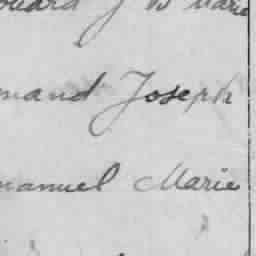 ouard J B Marie
mand Joseph
manuel Marie